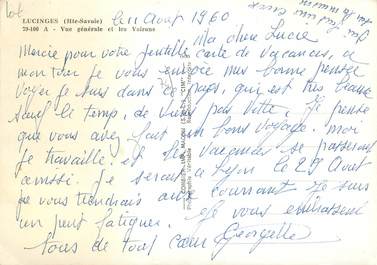 LUCINGES (Hte-Savoie)
79-100 A - Vue générale et les Voirons
le 11 Aout 1960
Ma chère Lucie
Merci pour votre gentille carte de vacances, a
mon tour je vous envoie mes bonne pensée
voyez je suis dans ce pays, qui est très beau
sauf le temp, de vient pas vitte, je pense
que vous avez fait un bons voyage. moi
je travaille, et les vacances se passeront
aussi. Je serait a Lyon le 29 Aout
je vous tiendrais au courrant. Je suis
un peut fatiguée. Je vous embrassent
tous de tout cœur Georgette